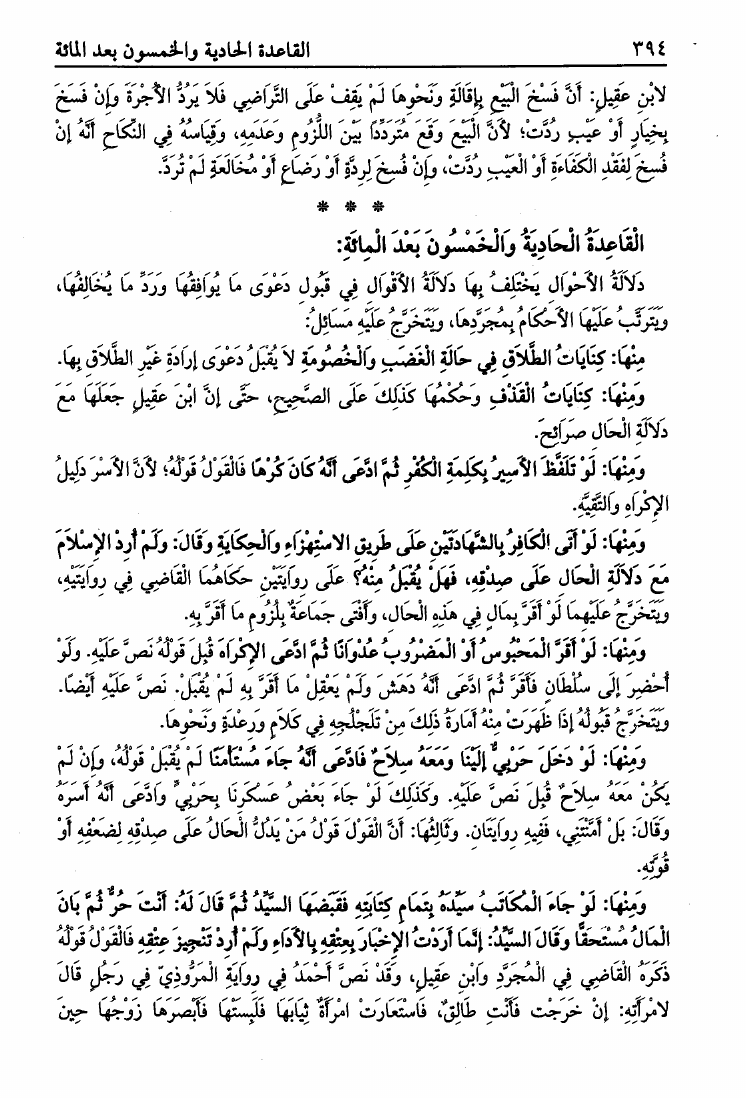 ٣٩٤ القاعدة الحادية والخمسون بعد المائة
لابْنِ عَقِيلٍ: أَنَّ فَسْخَ الْبَيْعِ بِإِقَالَةٍ وَنَحْوِهَا لَمْ يَقِفْ عَلَى التَّرَاضِي فَلاَ يَرُدُّ الأُجْرَةَ وَإِنْ فَسَخَ
بِخِيَارٍ أَوْ عَيْبٍ رُدَّتْ؛ لأَنَّ الْبَيْعَ وَقَعَ مُتَرَدِّدًا بَيْنَ اللُّزُومِ وَعَدَمِهِ، وَقِيَاسُهُ فِي النِّكَاحِ أَنَّهُ إِنْ
فُسِخَ لِفَقْدِ الْكَفَاءَةِ أَوْ الْعَيْبِ رُدَّتْ، وَإِنْ فُسِخَ لِرِدَّةٍ أَوْ رَضَاعٍ أَوْ مُخَالَعَةٍ لَمْ تُرَدَّ.
* * *
الْقَاعِدَةُ الْحَادِيَةُ وَالْخَمْسُونَ بَعْدَ الْمِائَةِ:
دَلاَلَةُ الأَحْوَالِ يَخْتَلِفُ بِهَا دَلاَلَةُ الأَقْوَالِ فِي قَبُولِ دَعْوَى مَا يُوَافِقُهَا وَرَدِّ مَا يُخَالِفُهَا،
وَيَتَرَتَّبُ عَلَيْهَا الأَحْكَامُ بِمُجَرَّدِهَا، وَيَتَخَرَّجُ عَلَيْهِ مَسَائِلُ:
مِنْهَا: كِنَايَاتُ الطَّلاَقِ فِي حَالَةِ الْغَضَبِ وَالْخُصُومَةِ لاَ يُقْبَلُ دَعْوَى إِرَادَةِ غَيْرِ الطَّلاَقِ بِهَا.
وَمِنْهَا: كِنَايَاتُ الْقَذْفِ وَحُكْمُهَا كَذَلِكَ عَلَى الصَّحِيحِ، حَتَّى إِنَّ ابْنَ عَقِيلٍ جَعَلَهَا مَعَ
دَلاَلَةِ الْحَالِ صَرَائِحَ.
وَمِنْهَا: لَوْ تَلَفَّظَ الأَسِيرُ بِكَلِمَةِ الْكُفْرِ ثُمَّ ادَّعَى أَنَّهُ كَانَ كَرْهًا فَالْقَوْلُ قَوْلُهُ؛ لأَنَّ الأَسْرَ دَلِيلُ
الإِكْرَاهِ وَالتَّقِيَّةِ.
وَمِنْهَا: لَوْ أَتَى الْكَافِرُ بِالشَّهَادَتَيْنِ عَلَى طَرِيقِ الاسْتِهْزَاءِ وَالْحِكَايَةِ وَقَالَ: وَلَمْ أُرِدْ الإِسْلاَمَ
مَعَ دَلاَلَةِ الْحَالِ عَلَى صِدْقِهِ، فَهَلْ يُقْبَلُ مِنْهُ؟ عَلَى رِوَايَتَيْنِ حَكَاهُمَا الْقَاضِي فِي رِوَايَتَيْهِ،
وَيَتَخَرَّجُ عَلَيْهِمَا لَوْ أَقَرَّ بِمَالٍ فِي هَذِهِ الْحَالِ، وَأَفْتَى جَمَاعَةٌ بِلُزُومِ مَا أَقَرَّ بِهِ.
وَمِنْهَا: لَوْ أَقَرَّ الْمَحْبُوسُ أَوْ الْمَضْرُوبُ عُدْوَانًا ثُمَّ ادَّعَى الإِكْرَاهَ قُبِلَ قَوْلُهُ نَصَّ عَلَيْهِ. وَلَوْ
أُحْضِرَ إِلَى سُلْطَانٍ فَأَقَرَّ ثُمَّ ادَّعَى أَنَّهُ دَهِشَ وَلَمْ يَعْقِلْ مَا أَقَرَّ بِهِ لَمْ يُقْبَلْ. نَصَّ عَلَيْهِ أَيْضًا.
وَيَتَخَرَّجُ قَبُولُهُ إِذَا ظَهَرَتْ مِنْهُ أَمَارَةُ ذَلِكَ مِنْ تَلَجْلُجِهِ فِي كَلاَمٍ وَرِعْدَةٍ وَنَحْوِهَا.
وَمِنْهَا: لَوْ دَخَلَ حَرْبِيٌّ إِلَيْنَا وَمَعَهُ سِلاَحٌ فَادَّعَى أَنَّهُ جَاءَ مُسْتَأْمَنًا لَمْ يُقْبَلْ قَوْلُهُ، وَإِنْ لَمْ
يَكُنْ مَعَهُ سِلاَحٌ قُبِلَ نَصَّ عَلَيْهِ. وَكَذَلِكَ لَوْ جَاءَ بَعْضُ عَسْكَرِنَا بِحَرْبِيٍّ وَادَّعَى أَنَّهُ أَسَرَهُ
وَقَالَ: بَلْ أَمَّنْتَنِي، فَفِيهِ رِوَايَتَانِ. وَثَالِثُهَا: أَنَّ الْقَوْلَ قَوْلُ مَنْ يَدُلُّ الْحَالُ عَلَى صِدْقِهِ لِضَعْفِهِ أَوْ
قُوَّتِهِ.
وَمِنْهَا: لَوْ جَاءَ الْمُكَاتَبُ سَيِّدَهُ بِتَمَامِ كِتَابَتِهِ فَقَبَضَهَا السَّيِّدُ ثُمَّ قَالَ لَهُ: أَنْتَ حُرٌّ ثُمَّ بَانَ
الْمَالُ مُسْتَحَقًّا وَقَالَ السَّيِّدُ: إِنَّمَا أَرَدْتُ الإِخْبَارَ بِعِتْقِهِ بِالأَدَاءِ وَلَمْ أُرِدْ تَنْجِيزَ عِتْقِهِ فَالْقَوْلُ قَوْلُهُ
ذَكَرَهُ الْقَاضِي فِي الْمُجَرَّدِ وَابْنِ عَقِيلٍ، وَقَدْ نَصَّ أَحْمَدُ فِي رِوَايَةِ الْمَرُّوذِيّ فِي رَجُلٍ قَالَ
لامْرَأَتِهِ: إِنْ خَرَجْت فَأَنْتِ طَالِقٌ، فَاسْتَعَارَتْ امْرَأَةٌ ثِيَابَهَا فَلَبِسَتْهَا فَأَبْصَرَهَا زَوْجُهَا حِينَ